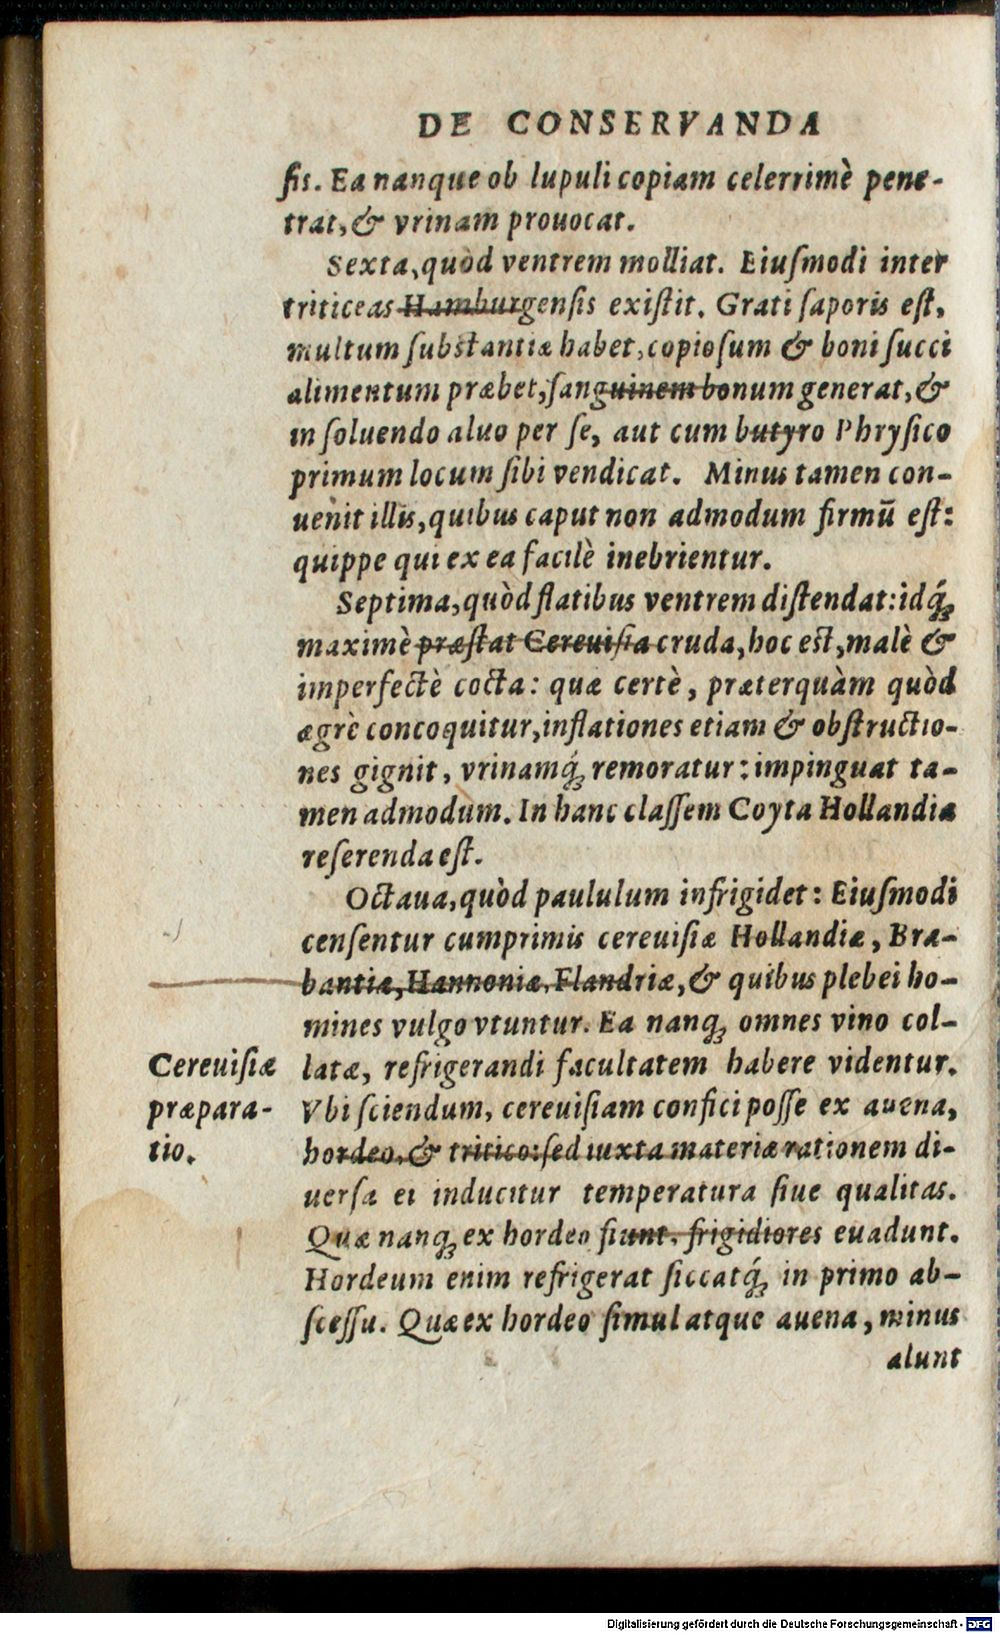 DE CONSERVANDA
ſis. Ea nanque ob lupuli copiam celerrimè pene-
trat, & vrinam prouocat.
Sexta, quòd ventrem molliat. Eiuſmodi inter
triticeas Hamburgenſis exiſtit. Grati ſaporis eſt,
multum ſubſtantiæ habet, copioſum & boni ſucci
alimentum præbet, ſanguinem bonum generat, &
in ſoluendo aluo per ſe, aut cum butyro Phryſico
primum locum ſibi vendicat. Minus tamen con-
uenit illis, quibus caput non admodum firmū eſt:
quippe qui ex ea facilè inebrientur.
Septima, quòd flatibus ventrem diſtendat: idq́;
maximè præſtat Cereuiſia cruda, hoc eſt, malè &
imperfectè cocta: quæ certè, præterquàm quòd
ægrè concoquitur, inflationes etiam & obſtructio-
nes gignit, vrinamq́; remoratur: impinguat ta-
men admodum. In hanc claſſem Coyta Hollandiæ
referenda eſt.
Octaua, quòd paululum infrigidet: Eiuſmodi
cenſentur cumprimis cereuiſiæ Hollandiæ, Bra-
bantiæ, Hannoniæ, Flandriæ, & quibus plebei ho-
mines vulgo vtuntur. Ea nanq; omnes vino col-
latæ, refrigerandi facultatem habere videntur.
Cereuiſiæ
præpara-
tio.
Vbi ſciendum, cereuiſiam confici poſſe ex auena,
hordeo, & tritico: ſed iuxta materiæ rationem di-
uerſa ei inducitur temperatura ſiue qualitas.
Quæ nanq; ex hordeo fiunt, frigidiores euadunt.
Hordeum enim refrigerat ſiccatq́; in primo ab-
ſceſſu. Quæ ex hordeo ſimul atque auena, minus
alunt
Digitalisierung gefördert durch die Deutsche Forschungsgemeinschaft - DFG